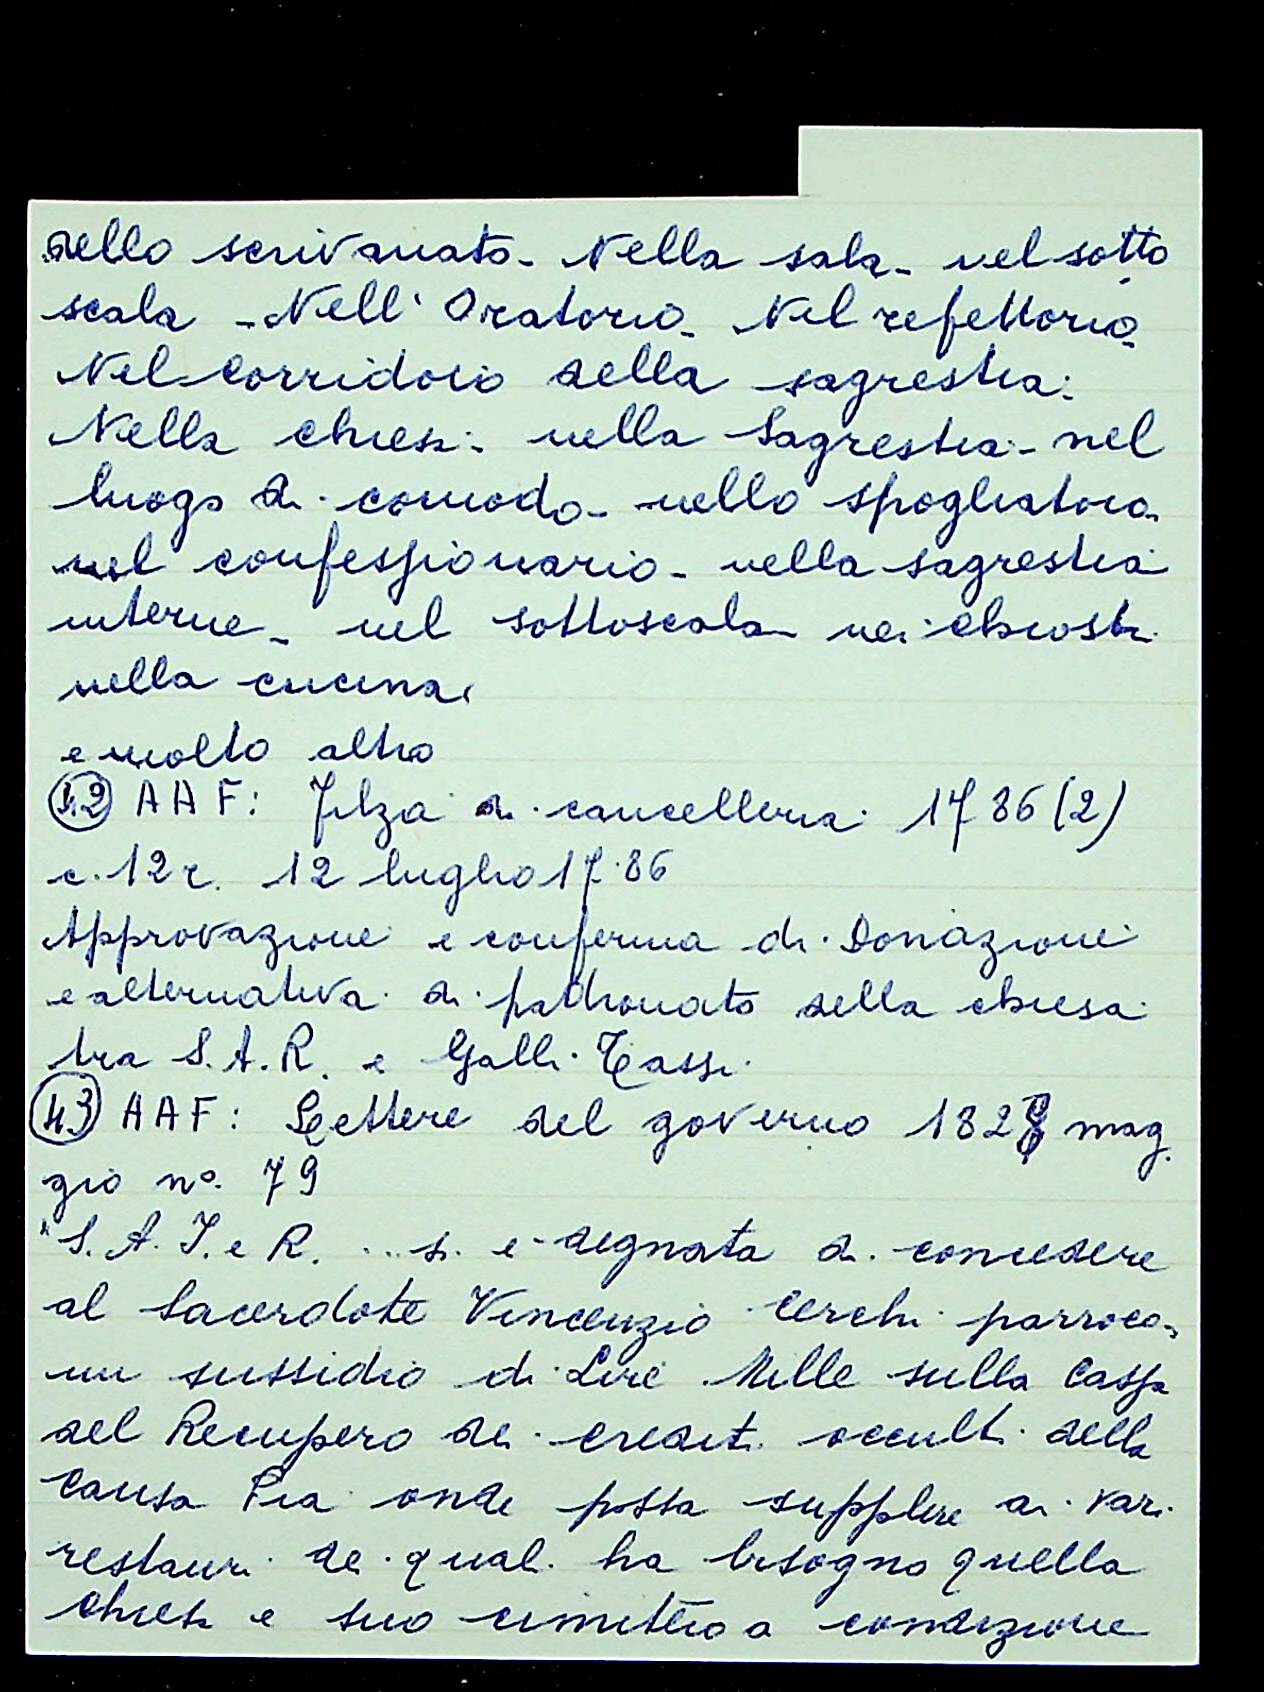 dello scrivanato - Nella sala - nel sotto
scala - Nell' Oratorio - Nel refettorio -
Nel corridoio della sagrestia.
Nella chiesa - nella Sagrestia - nel
luogo di comodo - nello spogliatoio -
nel confessionario - nella sagrestia
interna - nel sottoscala - nei chiostri
nella cucina
e molto altro
(42) AAF: Filza di cancelleria 1786 (2)
c. 12 r. 12 luglio 1786
Approvazione e conferma di Donazione
e alternativa di patronato della chiesa
tra S. A. R. e Galli Tassi.
(43) AAF: Lettere del governo 182 mag
gio n°. 79
"S. A. I. e R. ... si è degnata di concedere
al Sacerdote Vincenzio Cerchi parroco -
un sussidio di Lire Mille sulla Cassa
del Recupero dei crediti occulti della
Causa Pia onde possa supplire ai vari
restauri dei quali ha bisogno quella
Chiesa e suo cimitero a condizione